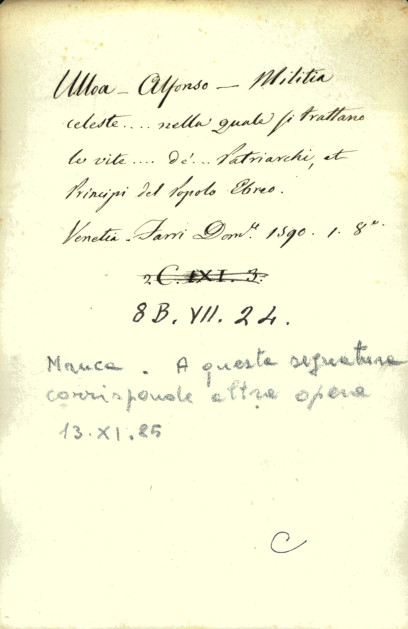 Ulloa - Alfonso - Militia
celeste.... nella quale si trattano
le vite.... de'... Patriarchi, et
Principi del Popolo Ebreo.
Venetia - Farri Dom.co 1590. 1. 8°.
2 C. IXI. 3.
8 B. VII. 24.
Manca. A questa segnatura
corrisponde altra opera
13.XI.85
C